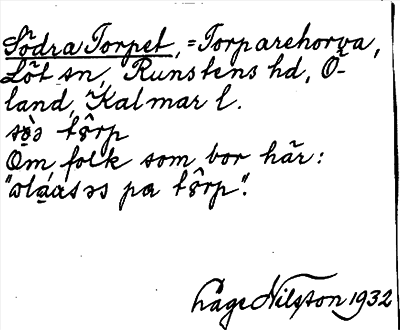 Södra Torpet, = Torparehorva,
Löt sn, Runstens hd, Ö-
land, Kalmar l.
tŝrp
Om folk som bor här:
pa tŝrp".
Nilsson 1932